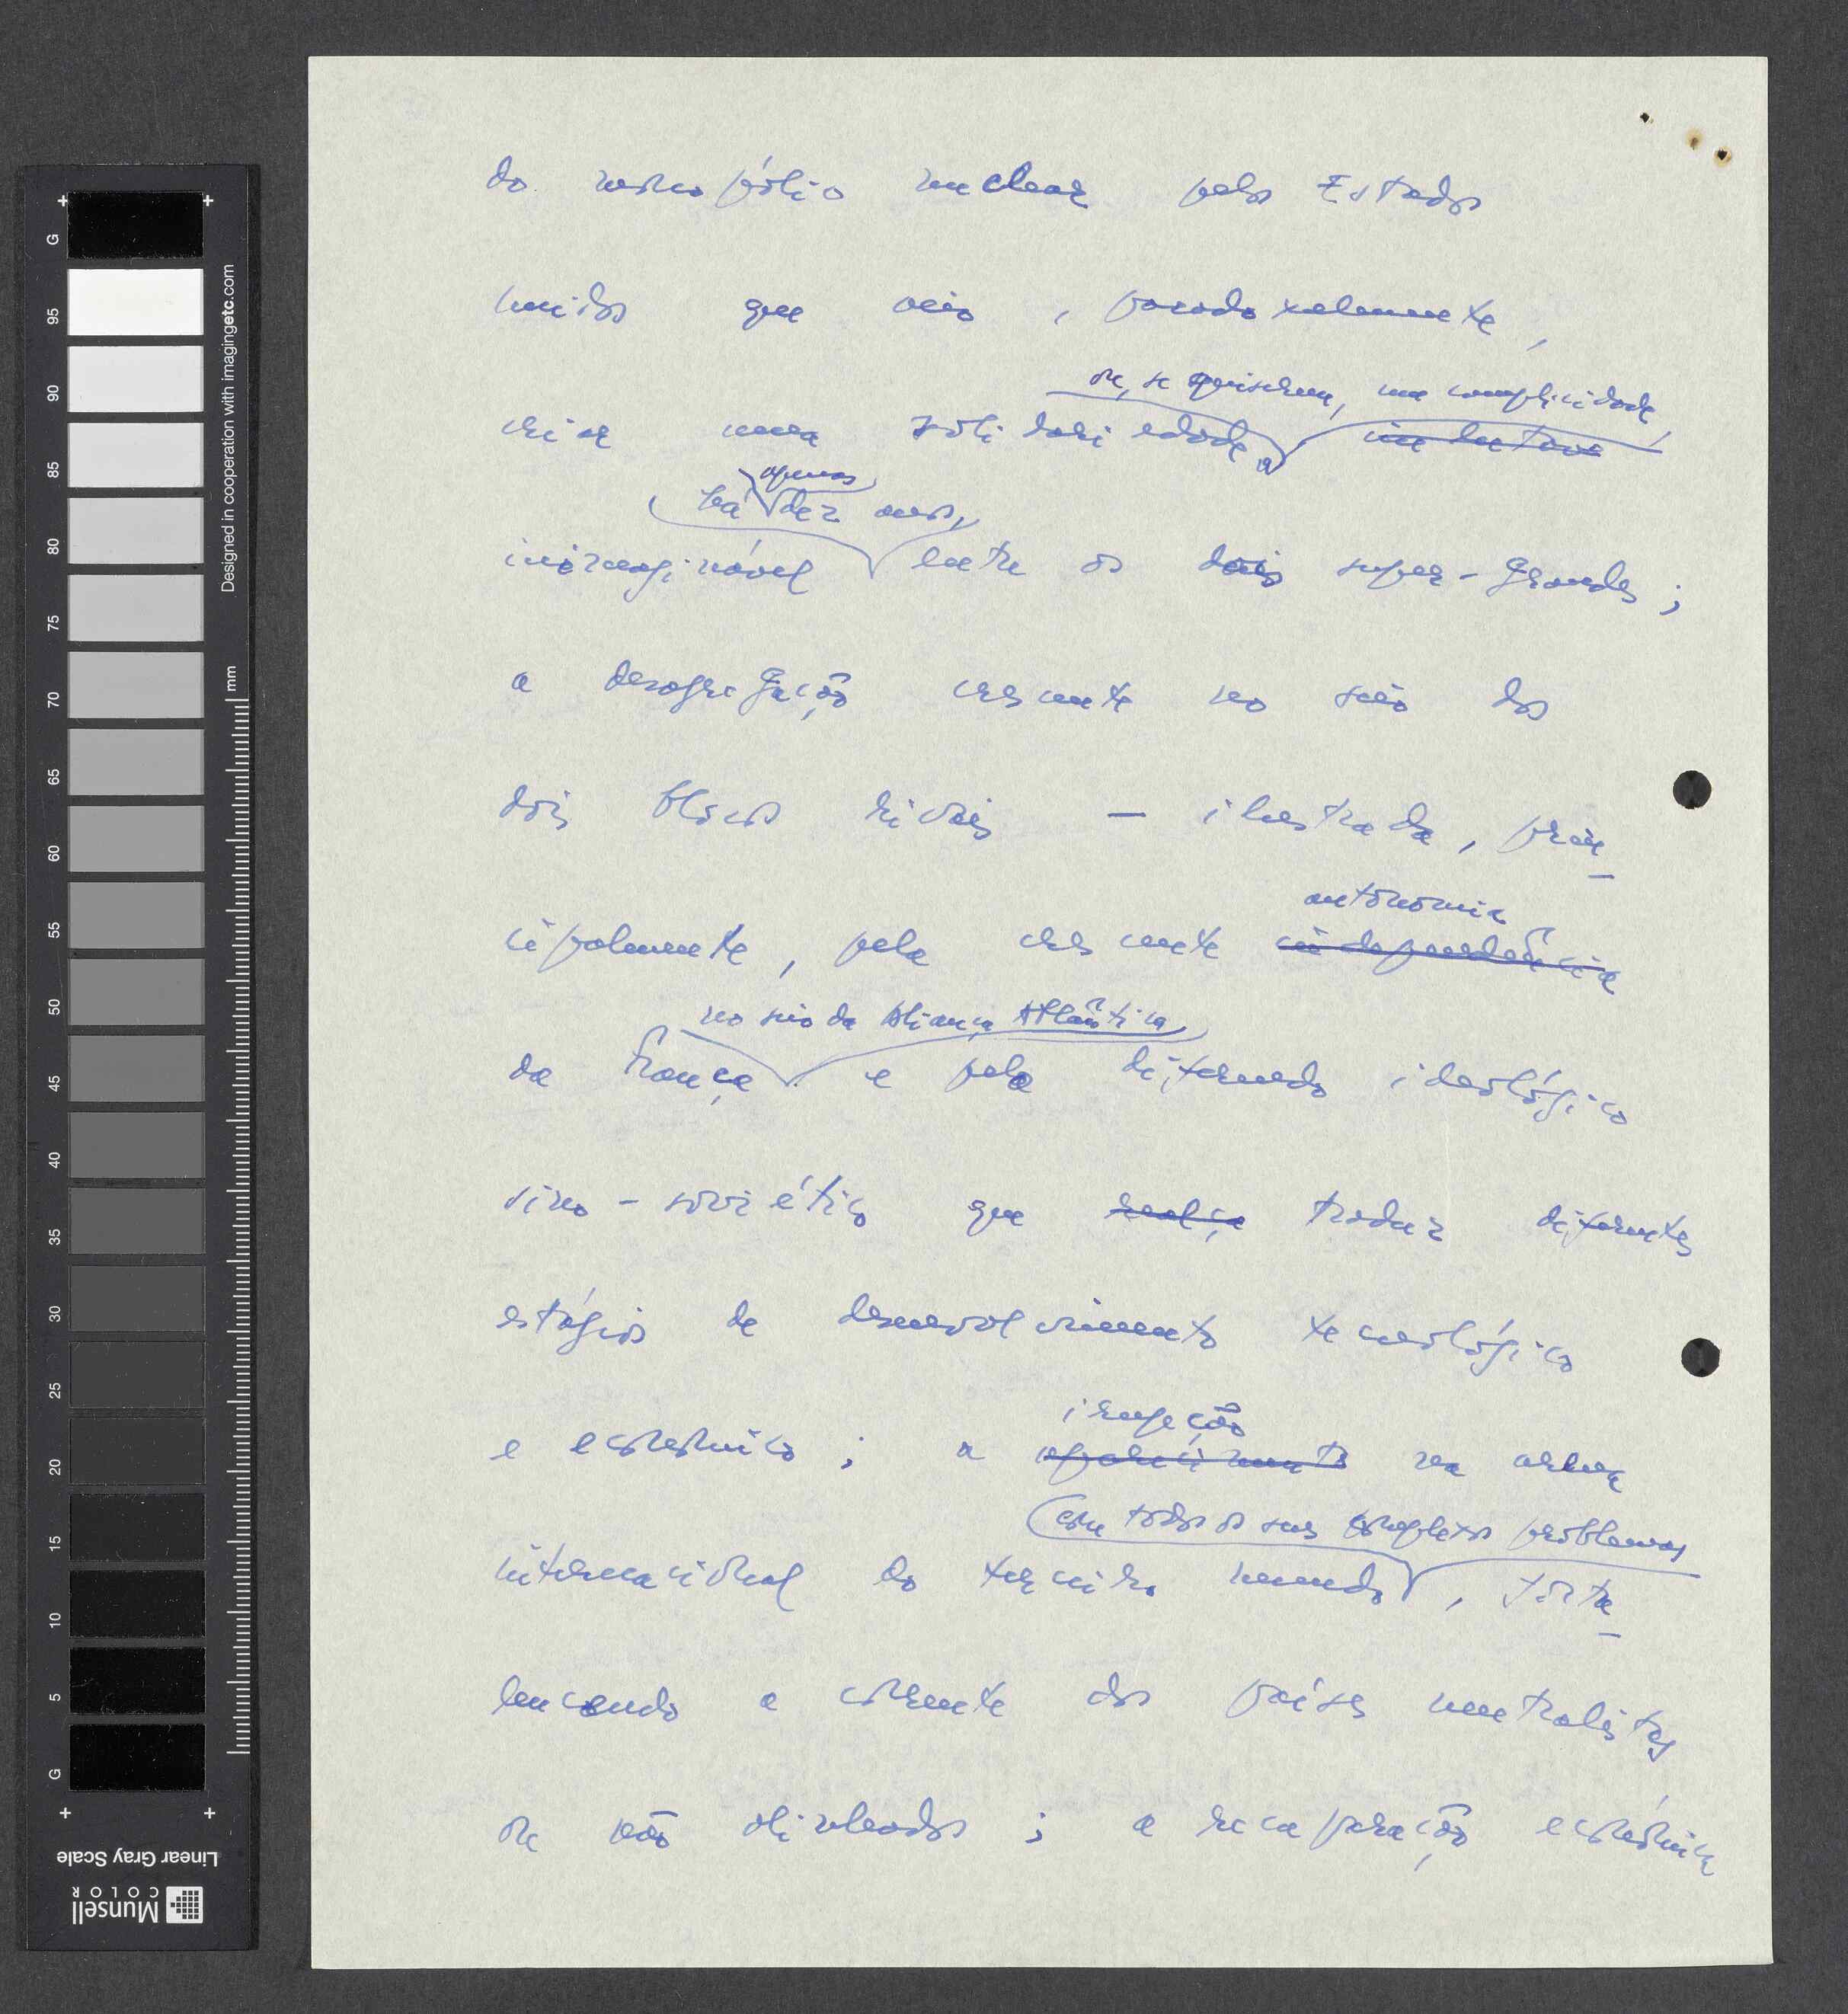 do monopólio nuclear pelos Estados
Unidos que veio, paradoxalmente,
ou, se quiserem, uma complicidade,
criar uma solidariedade,
há apenas dez anos,
inimaginável entre os dois super-grandes;
a desagregação crescente no seio dos
dois blocos rivais — ilustrada, prin-
autonomia
cipalmente, pela crescente independência
no seio da Aliança Atlântica
da França e pela diferendo ideológico
sino-soviético que realça traduz diferentes
estágios de desenvolvimento tecnológico
irrupção
e econômico; a aparecimento na arena
com todos os seus complexos problemas
internacional do terceiro mundo, forta-
lencendo a corrente dos países neutralistas
ou não alinhados; a recuperação econômica
G
95
90
85
80
75
70
65
60
55
50
45
40
35
30
25
20
15
10
5
G
mm
Designed in cooperation with imagingetc.com
Linear Gray Scale
Munsell
COLOR